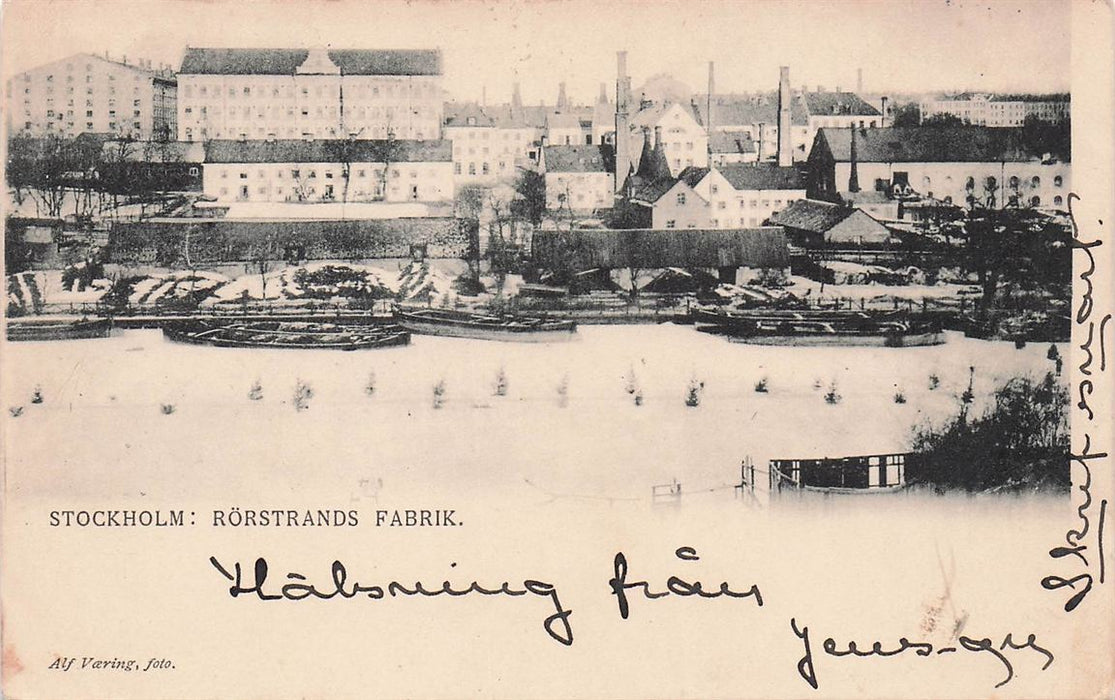 STOCKHOLM: RÖRSTRANDS FABRIK.
Hälsning från
Skrif snart.
Alf Væring, foto.